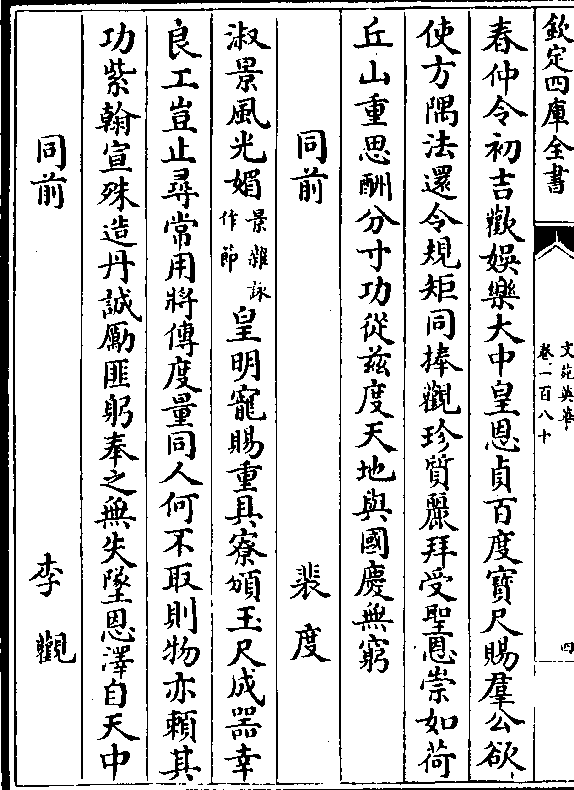 欽定四庫全書
文苑英華
卷一百八十
四
春仲令初吉歡娛樂大中皇恩貞百度寶尺賜羣公欲
使方隅法還令規矩同捧觀珍質麗拜受聖恩崇如荷
丘山重思酬分寸功從兹度天地與國慶無窮
同前 裴度
淑景風光媚景雜詠作節皇明寵賜重具寮頒玉尺成器幸
良工豈止尋常用將傳度量同人何不取則物亦賴其
功紫翰宣殊造丹誠勵匪躬奉之無失墜恩澤自天中
同前 李觀